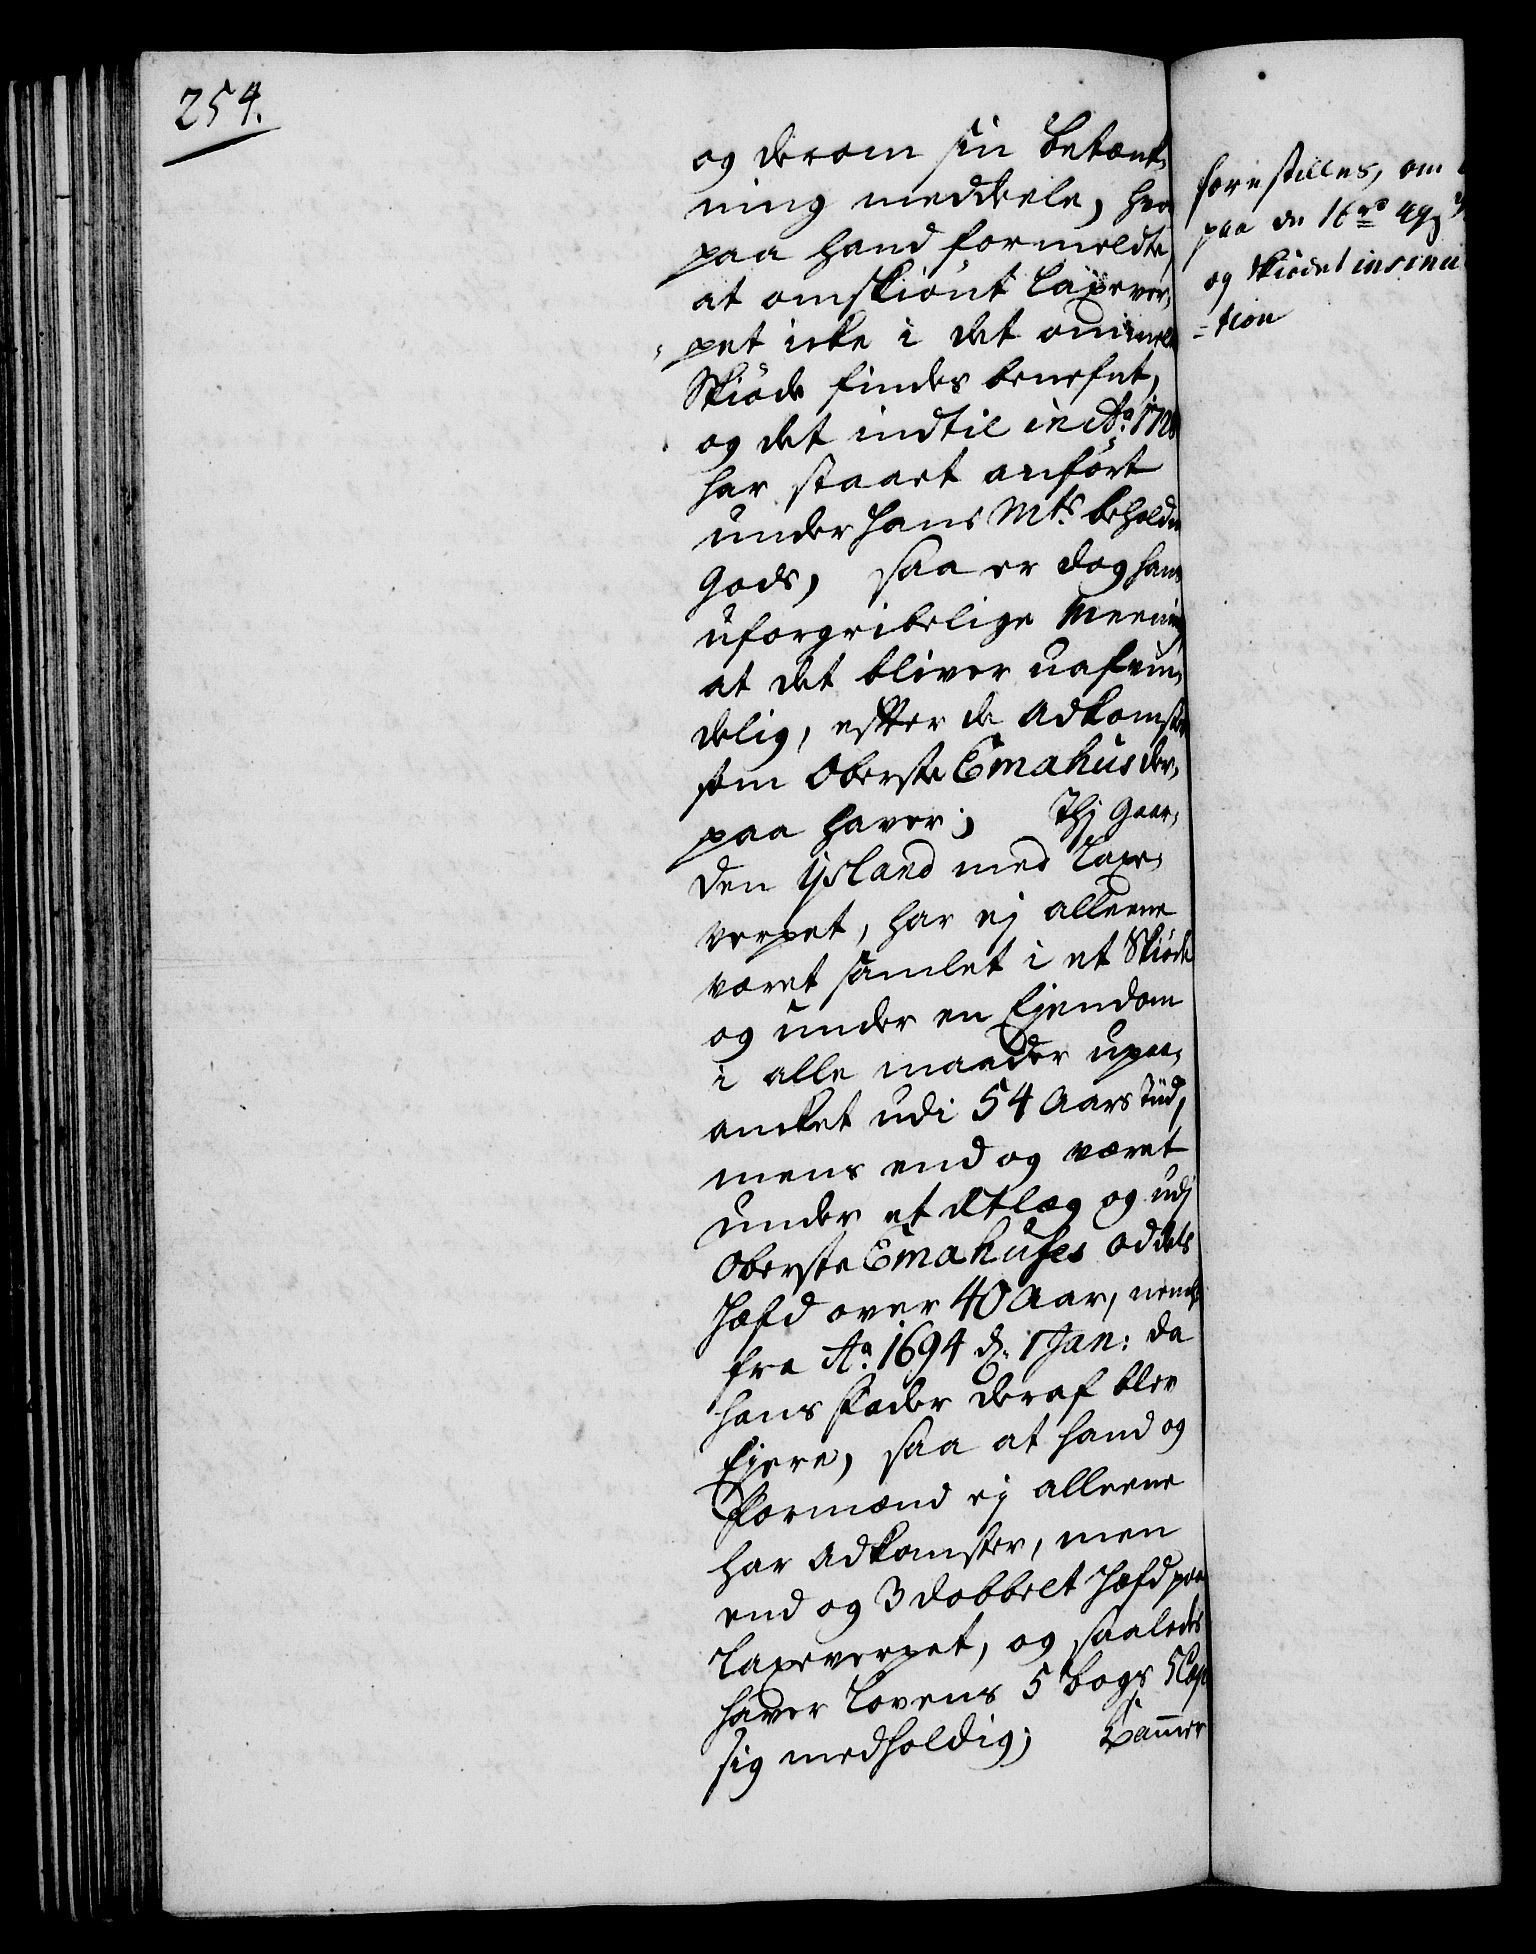 254.
og derom sin betænk,
ning meddeele, hvor
paa hand formeldte,
at omskiønt Laxever,
pet icke i det ommelte
Skiøde findes benefnt,
og det indtil in Ao. 17
har staaet anført
under Hans Mts. beholdne
Gods, saa er dog hans
uforgribelige Meening
at det bliver uafvin,
delig, efter de Adkomster
som Oberste Emahus der,
paa haver; Thj Gaar,
den ysland med Laxe,
verpet, har ej alleene
været samlet i et Skiøde
og under en Ejendom
i alle maader upaa,
ancket udi 54 Aars Tiid,
mens end og været
under et Udlæg og udj
Oberste Emahuses Oddels
Hæfd over 40 Aar, nemlig
fra Ao. 1694 d. 1 Jan: da
hans Fader deraf blev
Ejere, saa at hand og
Formænd ej alleene
har Adkomster, men
end og 3 dobbelt Hæfd paa
Laxeverpet, og saaledes
haver Lovens 5 Bogs 5 Cap
sig medholdig; Cammer
forestilles, om
paa de 16 rd 49 s
og Skiødet insinu
=tion